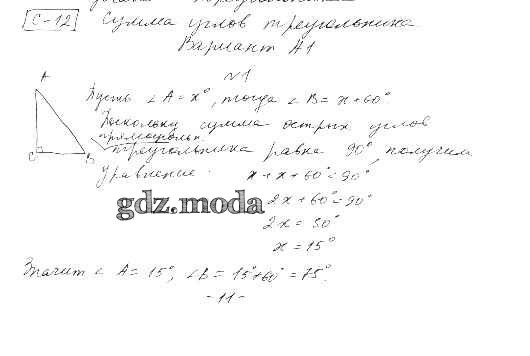 С-12 Сумма углов треугольника
Вариант А1
№1
A
C
B
Пусть ∠A = x°, тогда ∠B = x+60°
Поскольку сумма острых углов
прямоугольн.
треугольника равна 90°, получим
уравнение: x + x + 60° = 90°
gdz.moda
2x + 60° = 90°
2x = 30°
x = 15°
Значит ∠A = 15°, ∠B = 15°+60° = 75°.
- 11 -